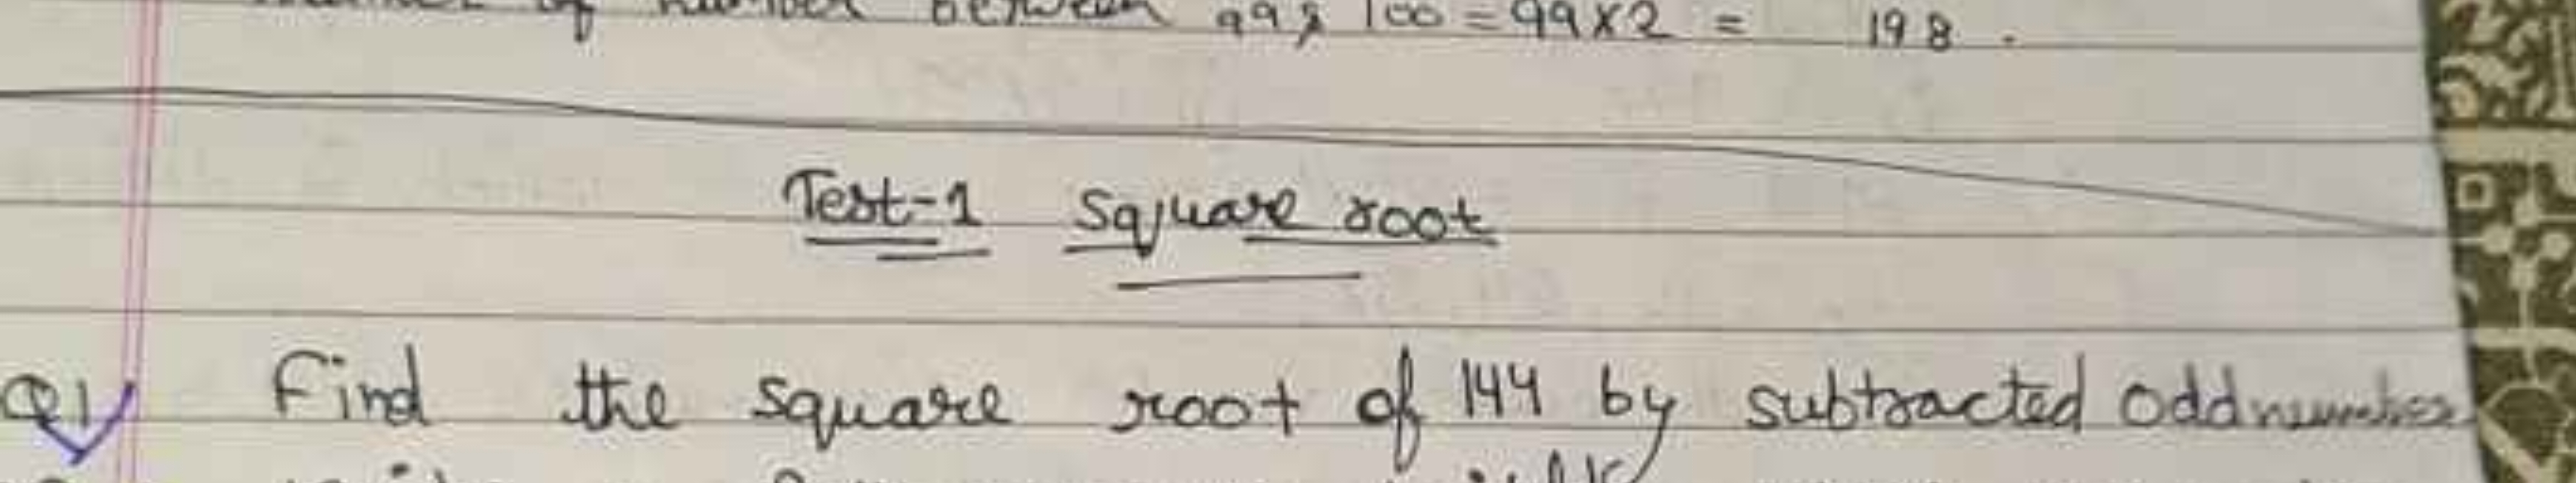 of number between 99 & 100 = 99x2 = 198.
Test-1 Square root
Q1 Find the square root of 144 by subtracted odd number